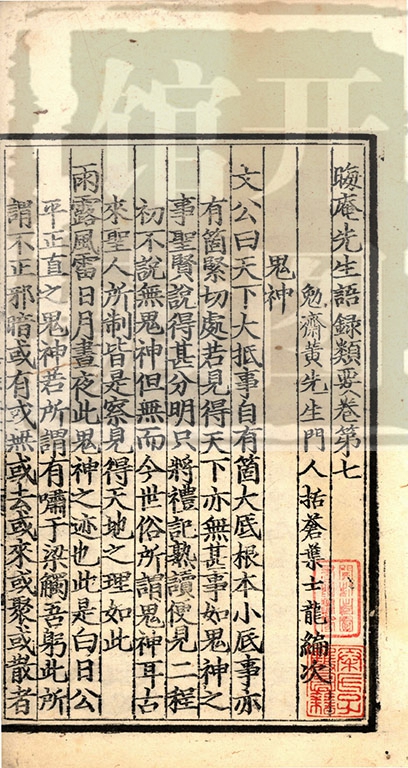 晦庵先生語録類要卷第七
勉齋黃先生門人括蒼葉士龍編次
鬼神
文公曰天下大抵事自有箇大底根本小底事亦
有箇緊切處若見得天下亦無甚事如鬼神之
事聖賢說得甚分明只將禮記熟讀便見二程
初不說無鬼神但無而今世俗所謂鬼神耳古
來聖人所制皆是察見得天地之理如此
雨露風雷日月晝夜此鬼神之迹也此是曰日公
平正直之鬼神若所謂有嘯于梁觸吾躬此所
謂不正邪暗或有或無或去或來或聚或散者